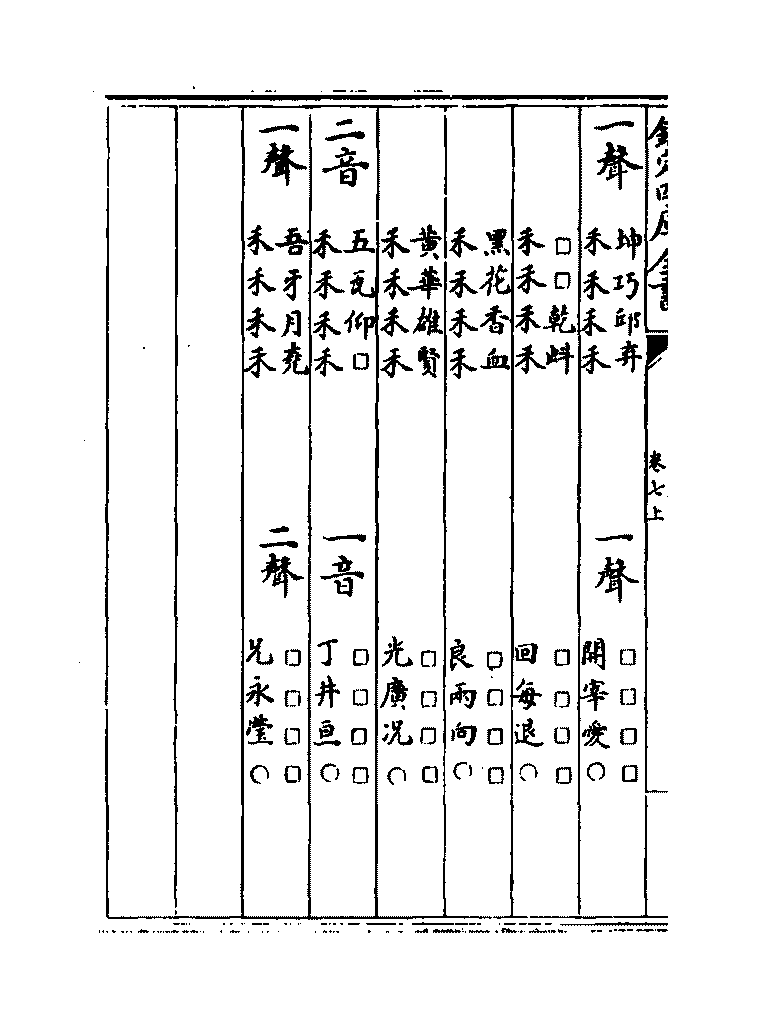 欽定四庫全書
卷七上
一聲
坤巧邱弃
禾禾禾禾
一聲
□□□□
開宰噯○
□□乾蚪
禾禾禾禾
□□□□
回每退○
黑花香血
禾禾禾禾
□□□□
良兩向○
黄華雄賢
禾禾禾禾
□□□□
光廣况○
二音
五瓦仰□
禾禾禾禾
一音
□□□□
丁井亘○
一聲
吾牙月堯
禾禾禾禾
二聲
□□□□
兄永瑩○